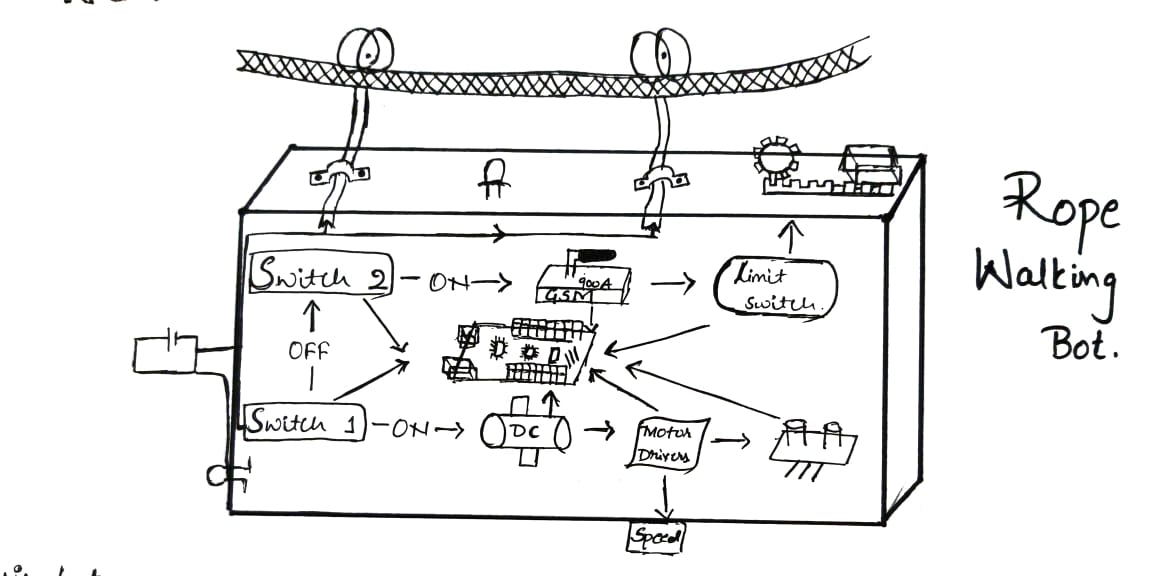 Rope
Walking
Bot.
Switch 2
ON
900A
GSM
Limit
Switch.
OFF
Switch 1
ON
DC
Motor
Drivers
Speed